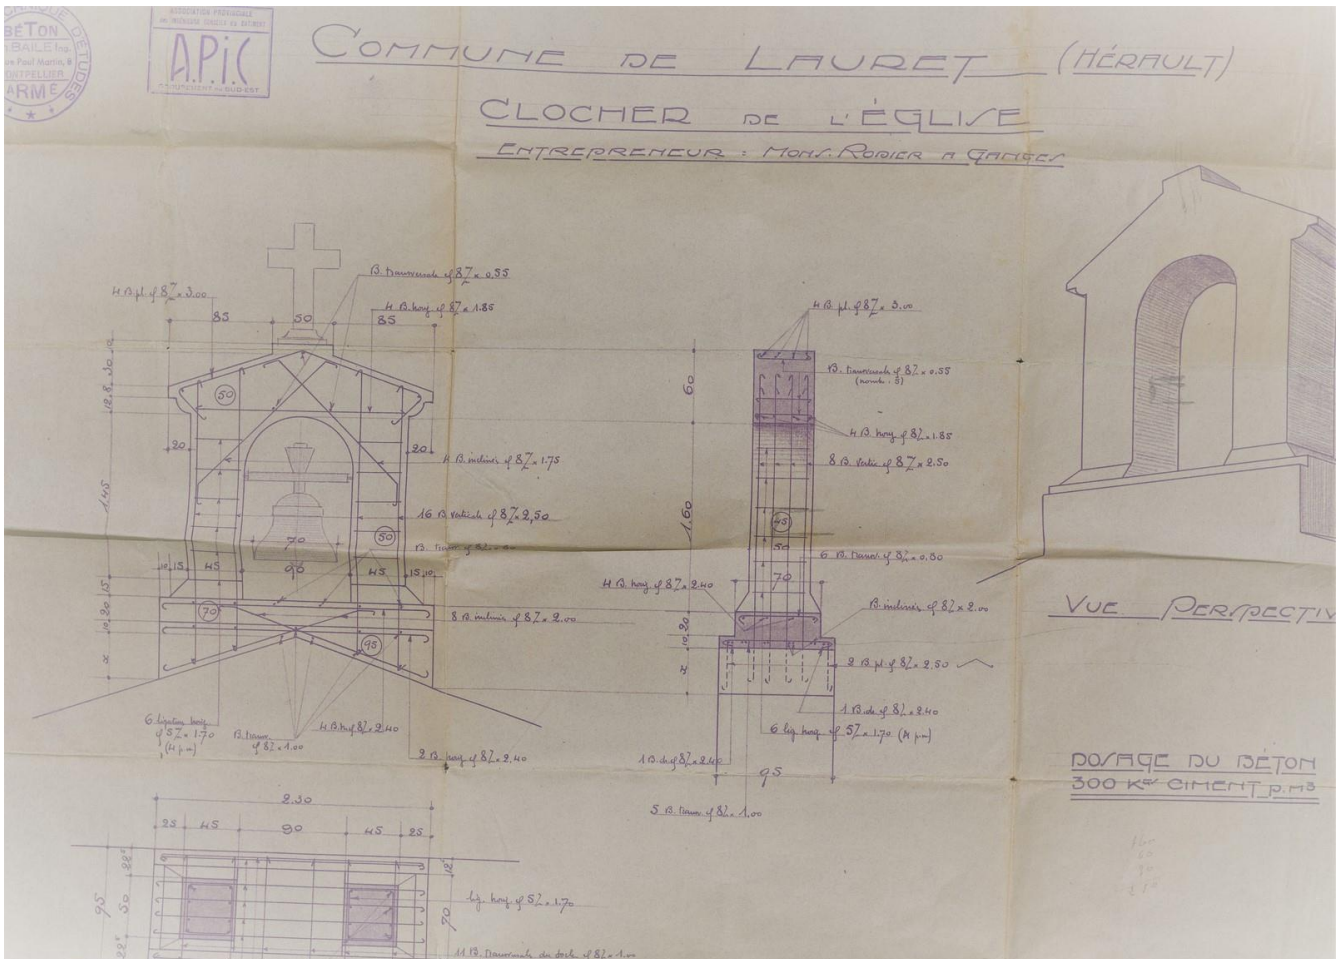 BÉTON
BAILE Ing.
rue Paul Marlin, 8
MONTPELLIER
ARMÉ
D'ÉTUDES
ASSOCIATION PROVINCIALE
A.P.i.C
COMMUNE DE LAURET (HÉRAULT)
CLOCHER DE L'ÉGLISE
ENTREPRENEUR : MONS. RODIER A GANGES
B. transversale φ 8% × 0.55
4 B. pl. φ 8% × 3.00
4 B. horiz φ 8% × 1.85
85 50 85
50
20 20
4 B. inclinés φ 8% × 1.75
1.45
16 B. verticale φ 8% × 2,50
50
70
10 15 45 90 45 15 10
70
8 B. inclinés φ 8% × 2.00
95
6 ligature horiz
φ 5% × 1.70
(4 p.m)
B. transv.
φ 8% × 1.00
4 B. h. φ 8% × 2.40
2 B. horiz φ 8% × 2.40
4 B. pl. φ 8% × 3.00
60
B. transversale φ 8% × 0.55
(nomb : 5)
4 B. horiz φ 8% × 1.85
8 B. vertic φ 8% × 2.50
1.60
45
50
6 B. transv. φ 8% × 0.80
70
4 B. horiz φ 8% × 2.40
B. inclinés φ 8% × 2.00
10 20
2 B. pl. φ 8% × 2.50
1 B. de φ 8% × 2.40
6 lig. horiz φ 5% × 1.70 (4 p.m)
1 B. de φ 8% × 2.40
95
5 B. transv. φ 8% × 1.00
VUE PERSPECTIV
DOSAGE DU BÉTON
300 KGS CIMENT P. M3
2.30
25 45 90 45 25
95
22⁵ 50 22⁵
12⁵
70
lig. horiz φ 5% × 1.70
11 B. transversale du socle φ 8% × 1.00